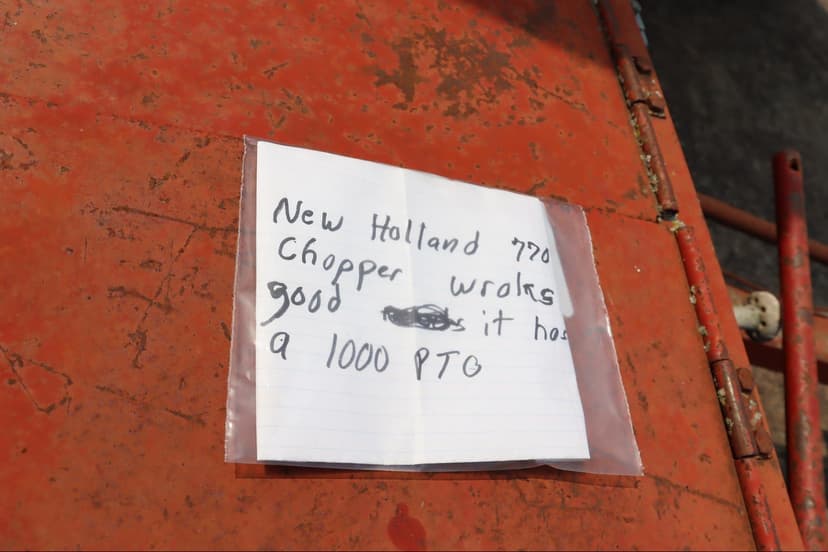 New Holland 770
Chopper wroks
good it has
a 1000 PTO